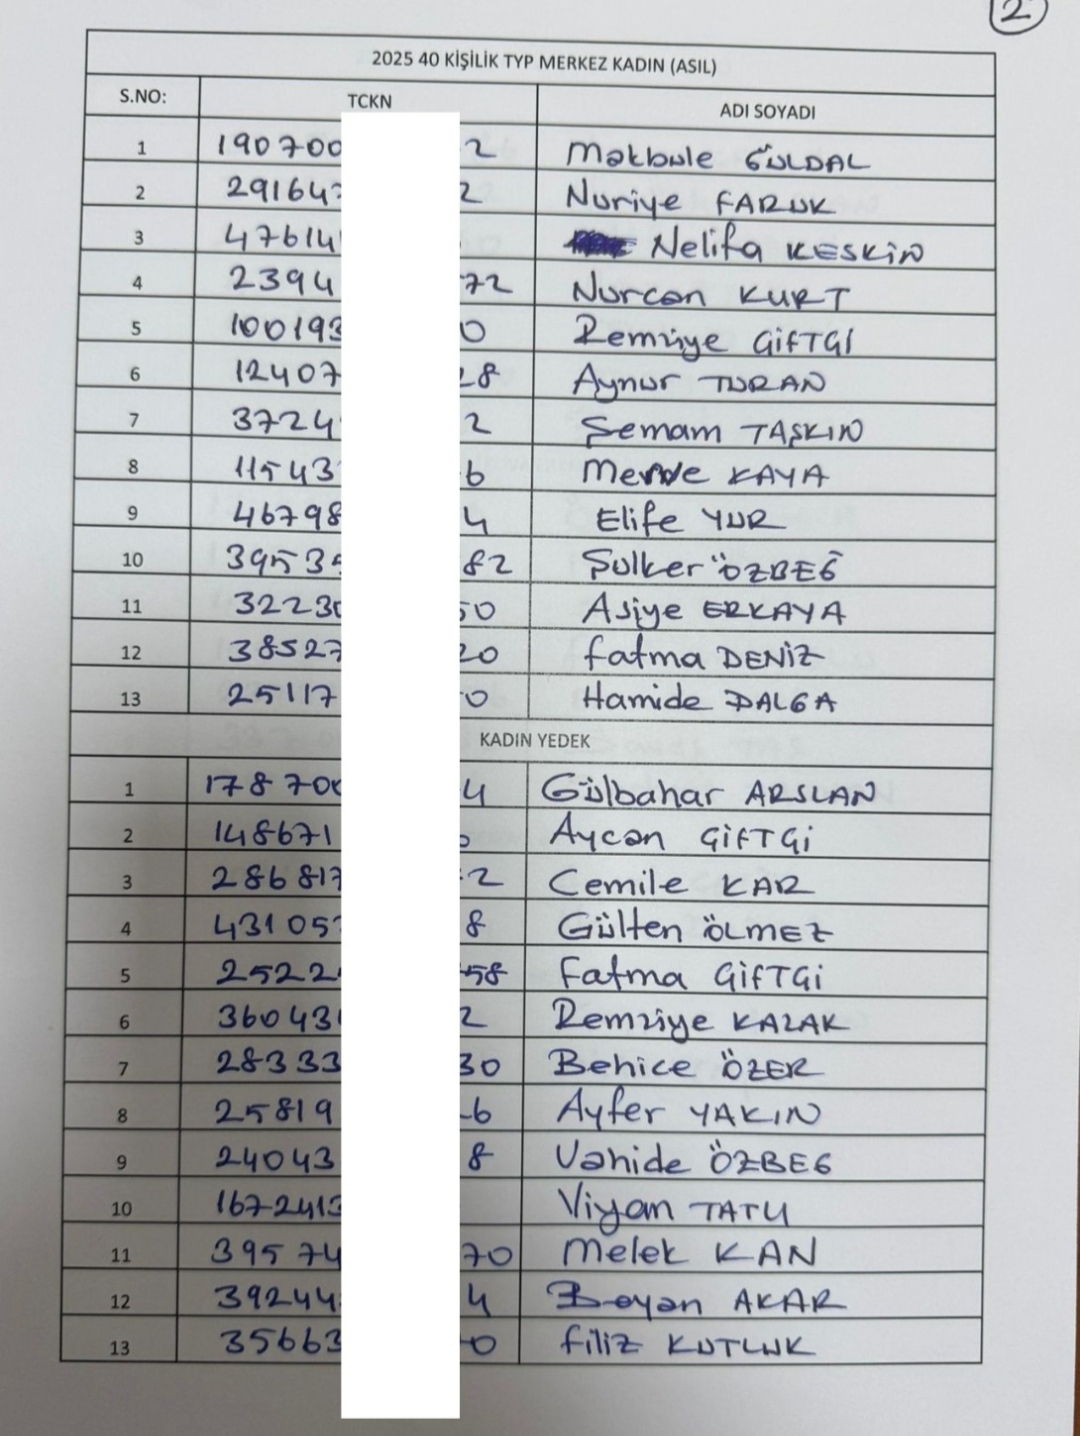 2
2025 40 KİŞİLİK TYP MERKEZ KADIN (ASIL)
S.NO: TCKN ADI SOYADI
1 190700 2 Makbule GÜLDAL
2 29164 2 Nuriye FARUK
3 47614 Nelifa KESKİN
4 2394 72 Nurcan KURT
5 100193 0 Remziye ÇİFTÇİ
6 12407 28 Aynur TURAN
7 3724 2 Şemam TAŞKIN
8 11543 6 Merve KAYA
9 46798 4 Elife YUR
10 3953 82 Şulker ÖZBEĞ
11 3223 50 Asiye ERKAYA
12 38527 20 Fatma DENİZ
13 25117 0 Hamide DALGA
KADIN YEDEK
1 178700 4 Gülbahar ARSLAN
2 148671 Aycan ÇİFTÇİ
3 286817 2 Cemile KAR
4 43105 8 Gülten ÖLMEZ
5 2522 58 Fatma ÇİFTÇİ
6 36043 2 Remziye KAZAK
7 28333 30 Behice ÖZER
8 25819 6 Ayfer YAKIN
9 24043 8 Vahide ÖZBEG
10 1672413 Viyan TATLI
11 39574 70 Melek KAN
12 39244 4 Beyan AKAR
13 35663 0 Filiz KUTLUK